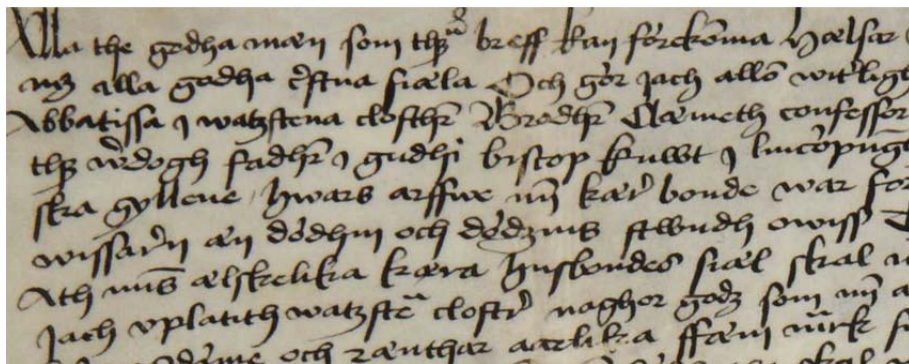 Alla the godha mæn som thꝫta breff kan förekoma Hælsar
mꝫ alla godha cʼstna siæla Och gör jach allō witʼligh
Abbatissa j watzstena closthʼ Brodhʼ Clæmeth confessor
thꝫ wʼdogh fadhʼ j gudhi biscop knwt j lincöpūg
ska gyllene hwars arffwe mī kær bonde war for
wissarʼn æn dödhin och dödzins stwndh owiss
Ath mīs ælskelika kæra husbondes siæl skal
Jach vplatith watzstēa clostʼ naghor godz som mī
och rænthar aarlika ffæm mʼrk